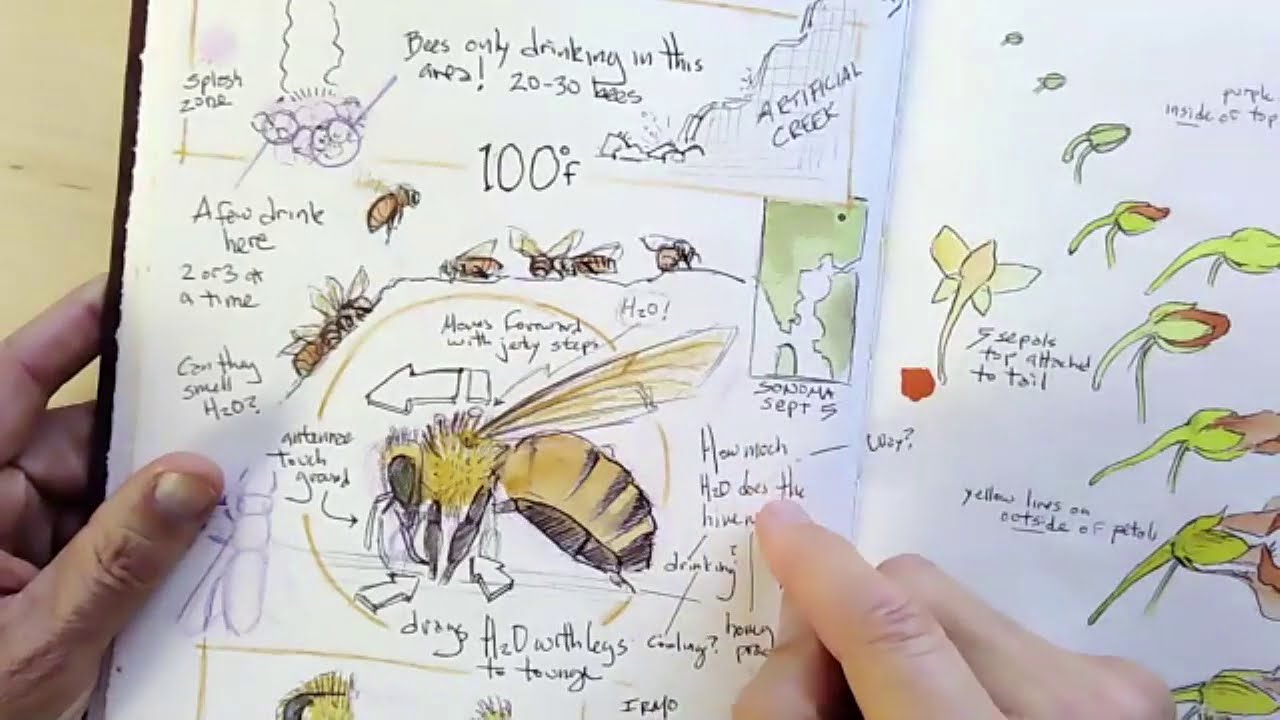 splosh
zone
Bees only drinking in this
area! 20-30 bees
ARTIFICIAL
CREEK
100°F
A few drink
here
2 or 3 at
a time
Can they
smell
H2O?
antennae
touch
ground
Moves Forward
with jerky steps
H2O!
SONOMA
Sept 5
How much
H2O does the
hive
drinking?
cooling?
honey
Why?
drags H2O with legs
to tounge
IRMO
purple
inside of top
5 sepals
top attached
to tail
yellow lines on
outside of petals